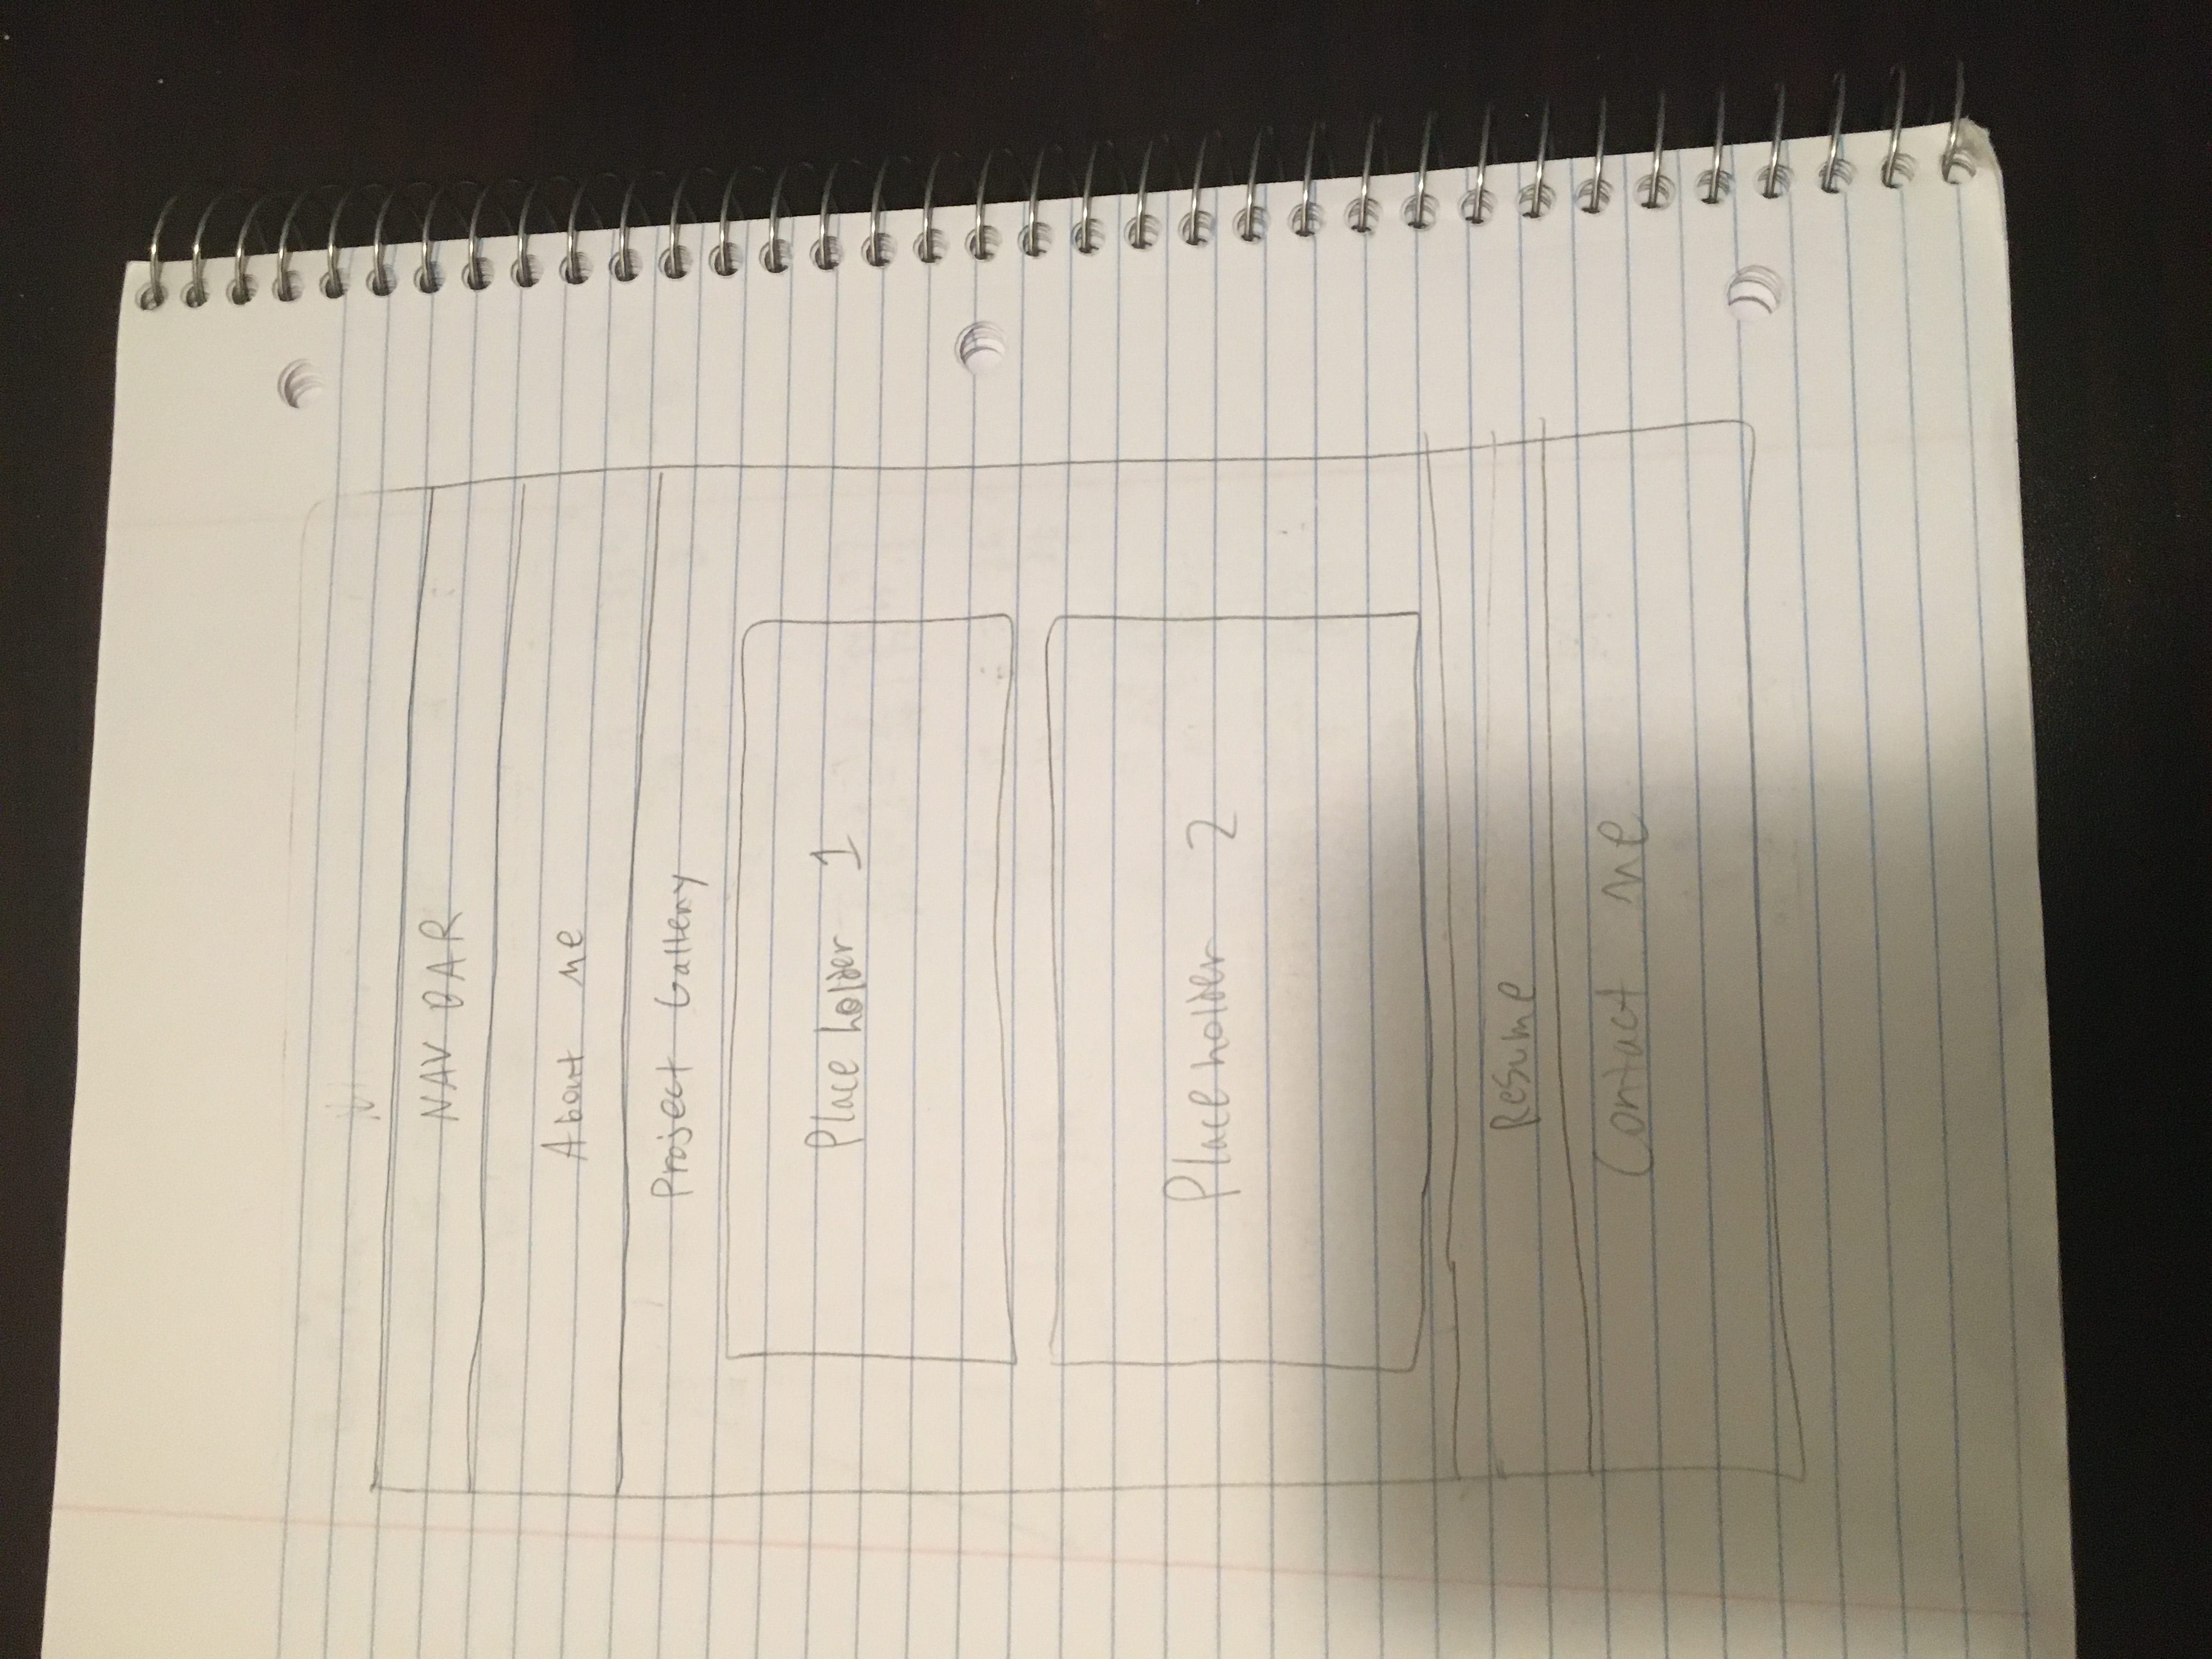 NAV BAR
About me
Project Gallery
Place holder 1
Place holder 2
Resume
Contact me